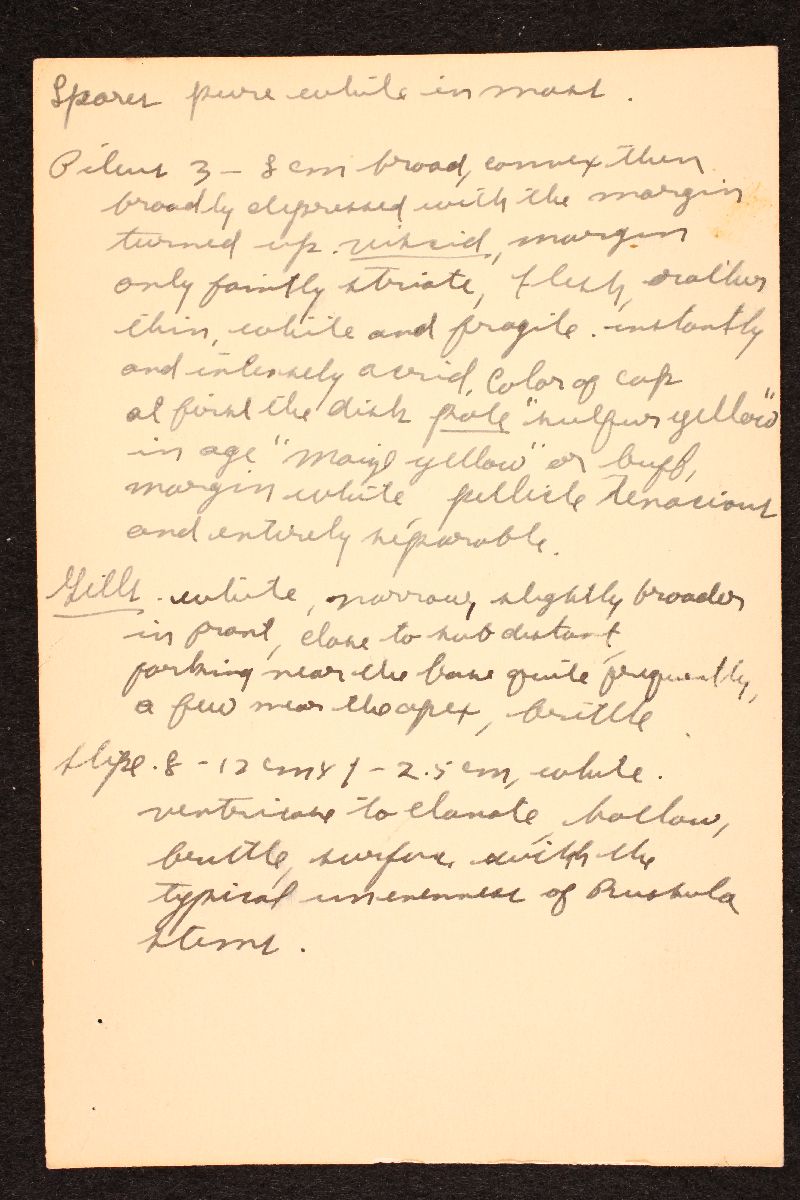 Spores pure white in mass.
Pileus 3 – 8 cm broad, convex then
broadly depressed with the margin
turned up. viscid, margin
only faintly striate, flesh, rather
thin, white and fragile. instantly
and intensely acrid, Color of cap
at first the disk pale "sulfur yellow"
in age "maize yellow" or buff,
margin white, pellicle tenacious
and entirely separable.
Gills. white, narrow, slightly broader
in front, close to subdistant
forking near the base quite frequently,
a few near the apex, brittle
Stipe. 8 - 12 cm x 1 - 2.5 cm, white.
ventricose to clavate, hollow,
brittle, surface with the
typical unevenness of Russula
stems.